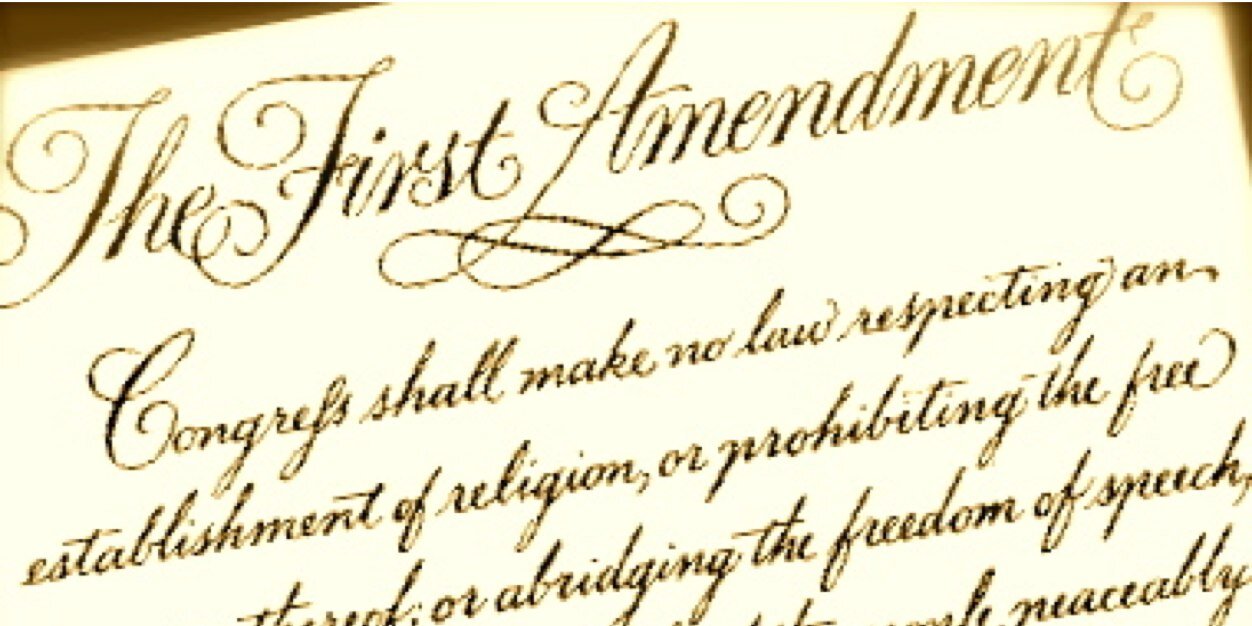 The First Amendment
Congreſs shall make no law respecting an
establishment of religion, or prohibiting the free
thereof; or abridging the freedom of speech,
peaceably